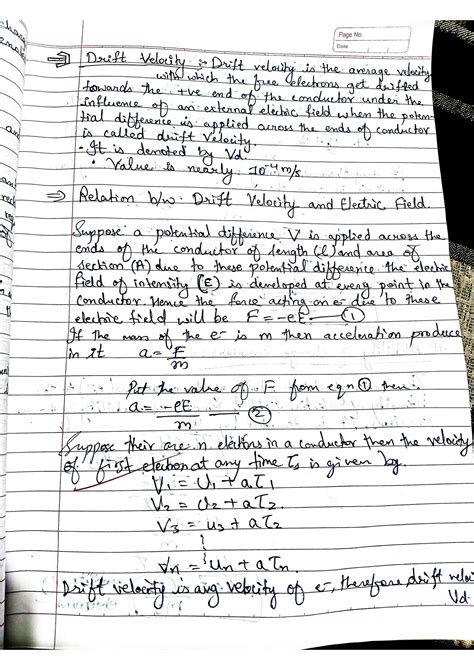 Page No.
Date
⇒ Drift Velocity :- Drift velocity is the average velocity
with which the free electrons get drifted
towards the +ve end of the conductor under the
influence of an external electric field when the poten-
tial difference is applied across the ends of conductor
is called drift velocity.
• It is denoted by Vd.
• Value is nearly 10⁻⁴ m/s
⇒ Relation b/w Drift Velocity and Electric Field.
Suppose a potential difference V is applied across the
ends of the conductor of length (l) and area of
section (A) due to these potential difference the electric
field of intensity (E) is developed at every point in the
conductor. Hence the force acting on e⁻ due to these
electric field will be F = -eE — ①
If the mass of the e⁻ is m then acceleration produce
in it a = F/m
Put the value of F from eqn ① then
a = -eE/m — ②
Suppose their are n electrons in a conductor then the velocity
of first electron at any time τs is given by.
V₁ = U₁ + aτ₁
V₂ = U₂ + aτ₂
V₃ = u₃ + aτ₂
Vn = un + aτn.
Drift velocity is avg velocity of e⁻, therefore drift velo
Vd